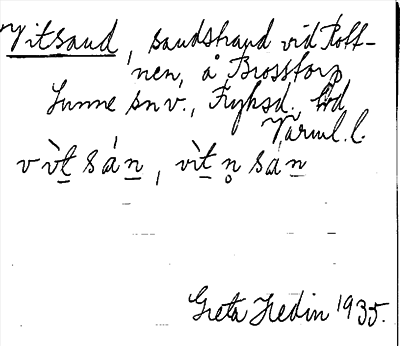 Vitsand, sandstrand vid Rott-
nen, å Brosstorp,
Sunne snv., Fryksd. hd
Värml. l.
v v̀ t̲ s á n̲, vì t̲ n̥ s a n̲
Greta Hedin 1935.